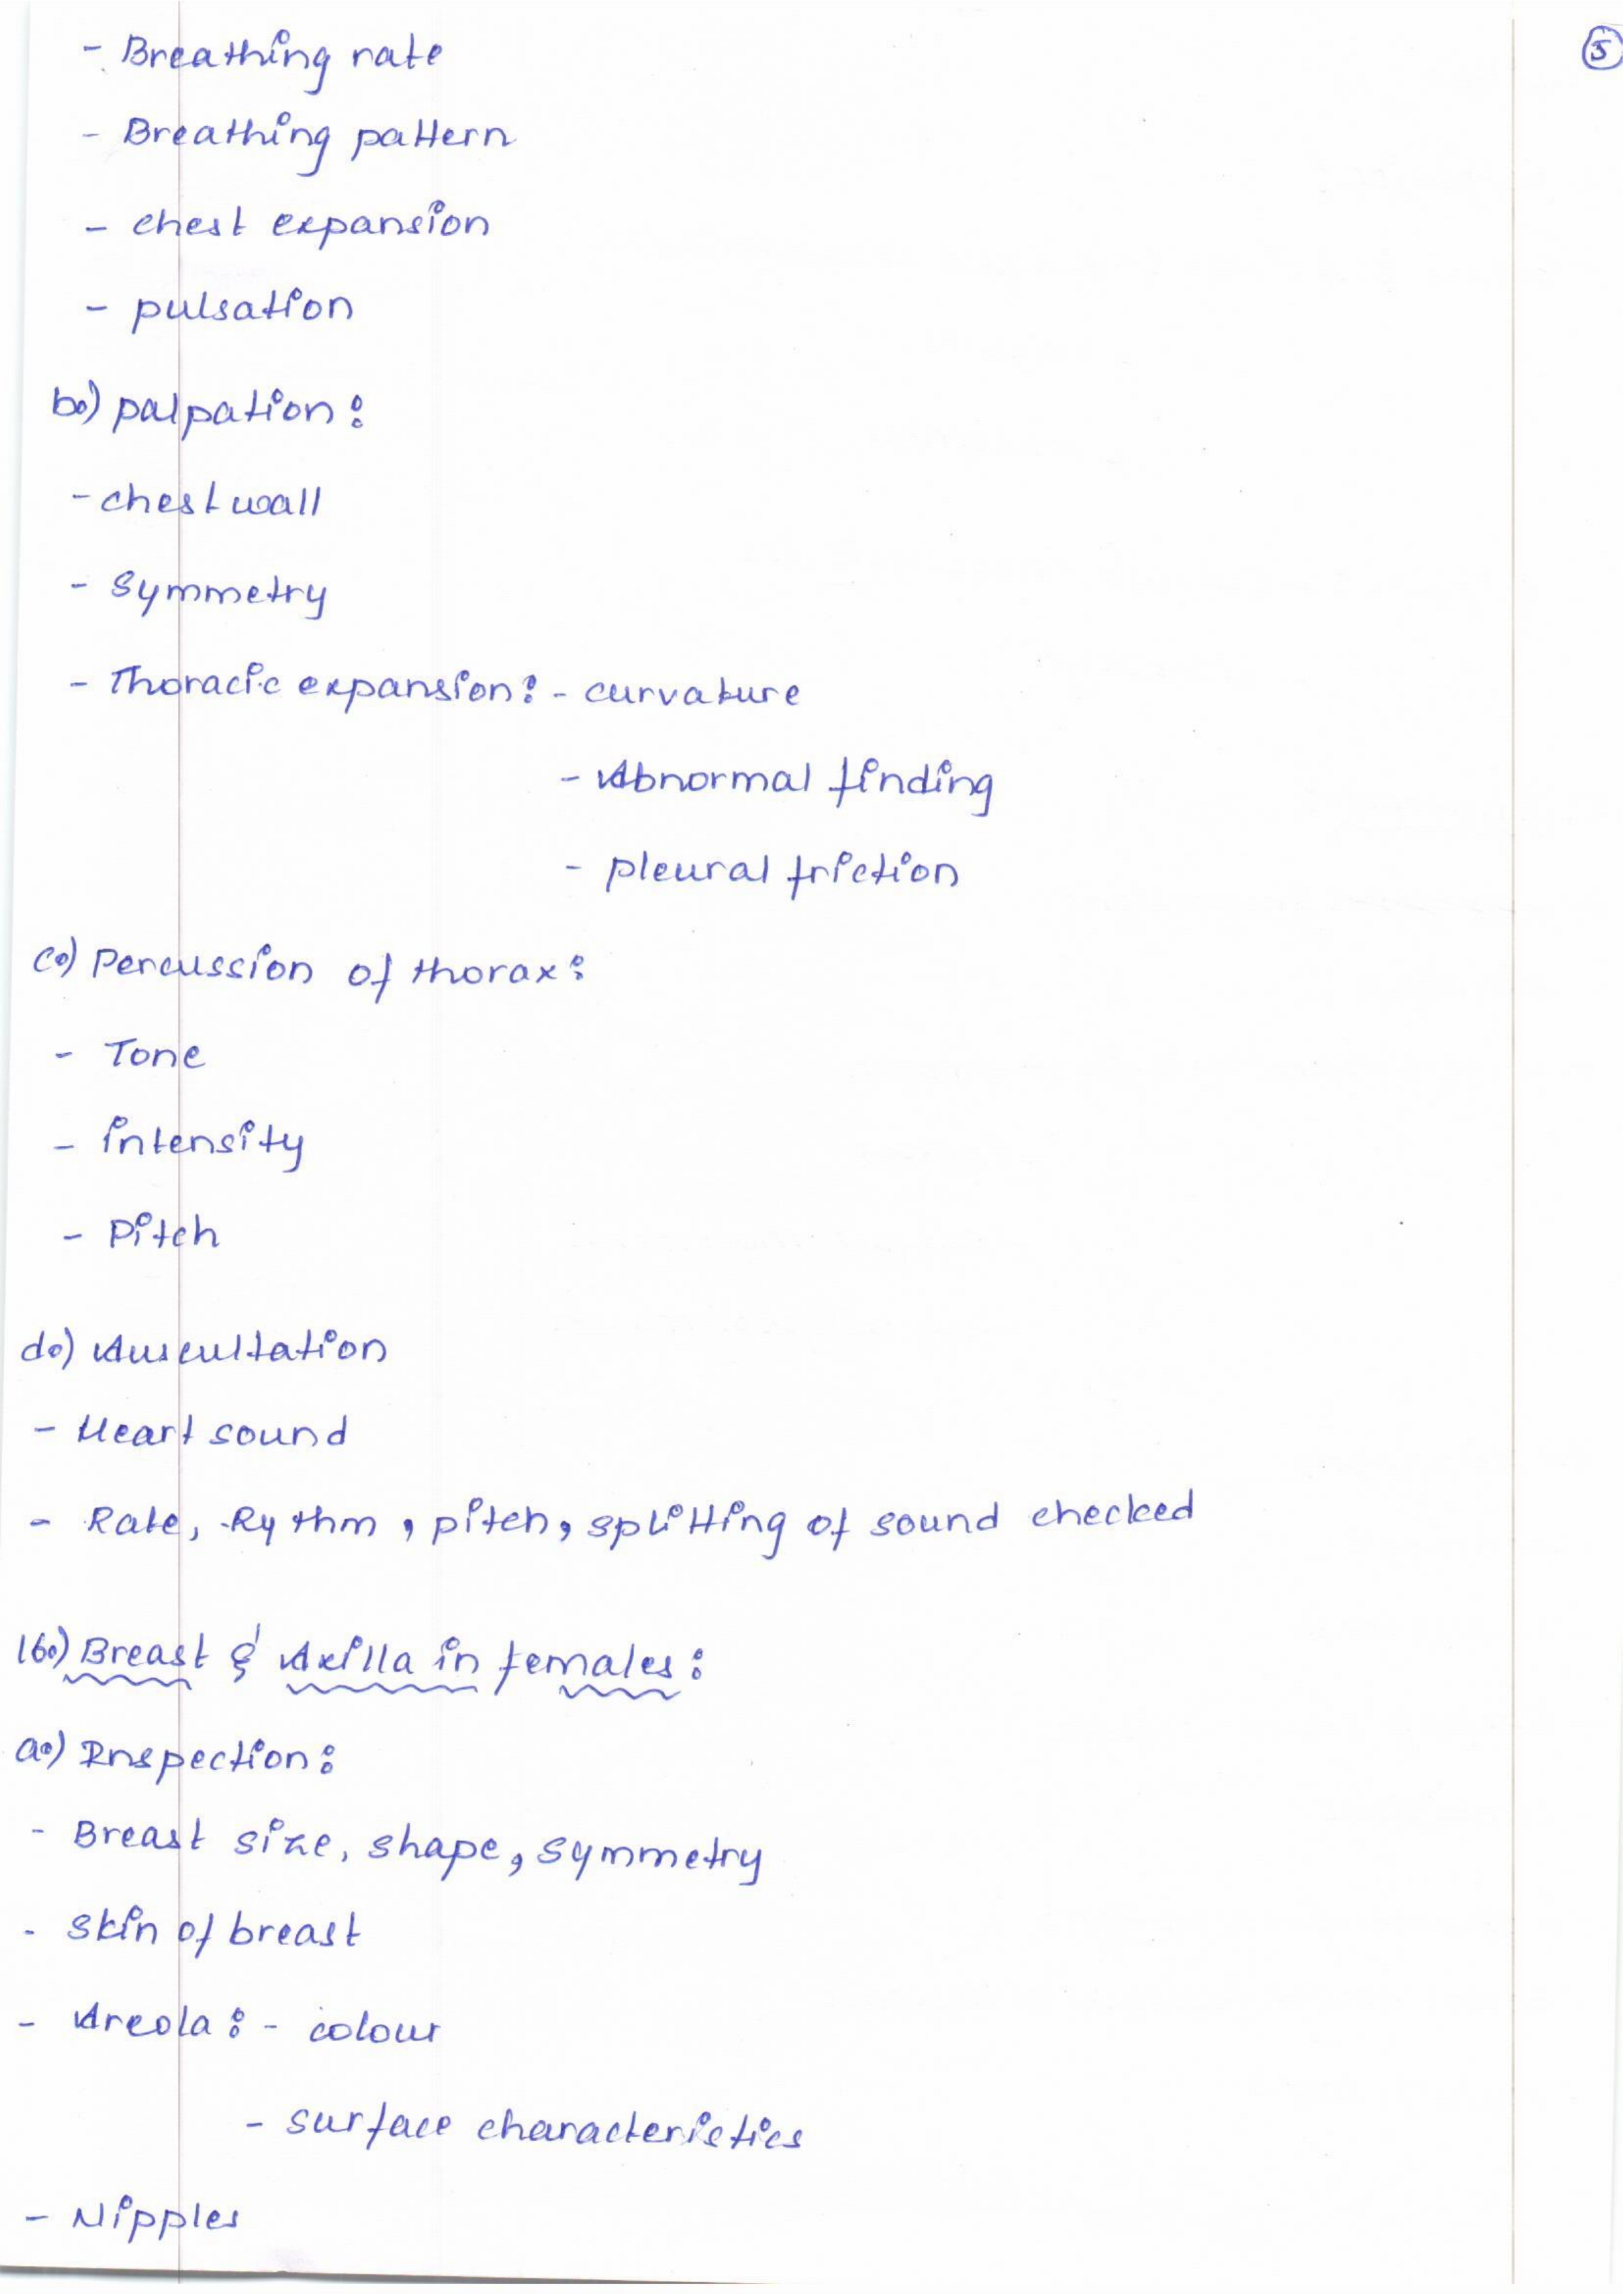 - Breathing rate
5
- Breathing pattern
- chest expansion
- pulsation
b.) palpation:
- chest wall
- Symmetry
- Thoracic expansion: - curvature
- Abnormal finding
- pleural friction
c.) Percussion of thorax:
- Tone
- intensity
- Pitch
d.) Auscultation
- Heart sound
- Rate, Rythm, pitch, splitting of sound checked
16.) Breast & Axilla in females:
a.) Inspection:
- Breast size, shape, symmetry
- Skin of breast
- Areola: - colour
- surface characteristics
- Nipples